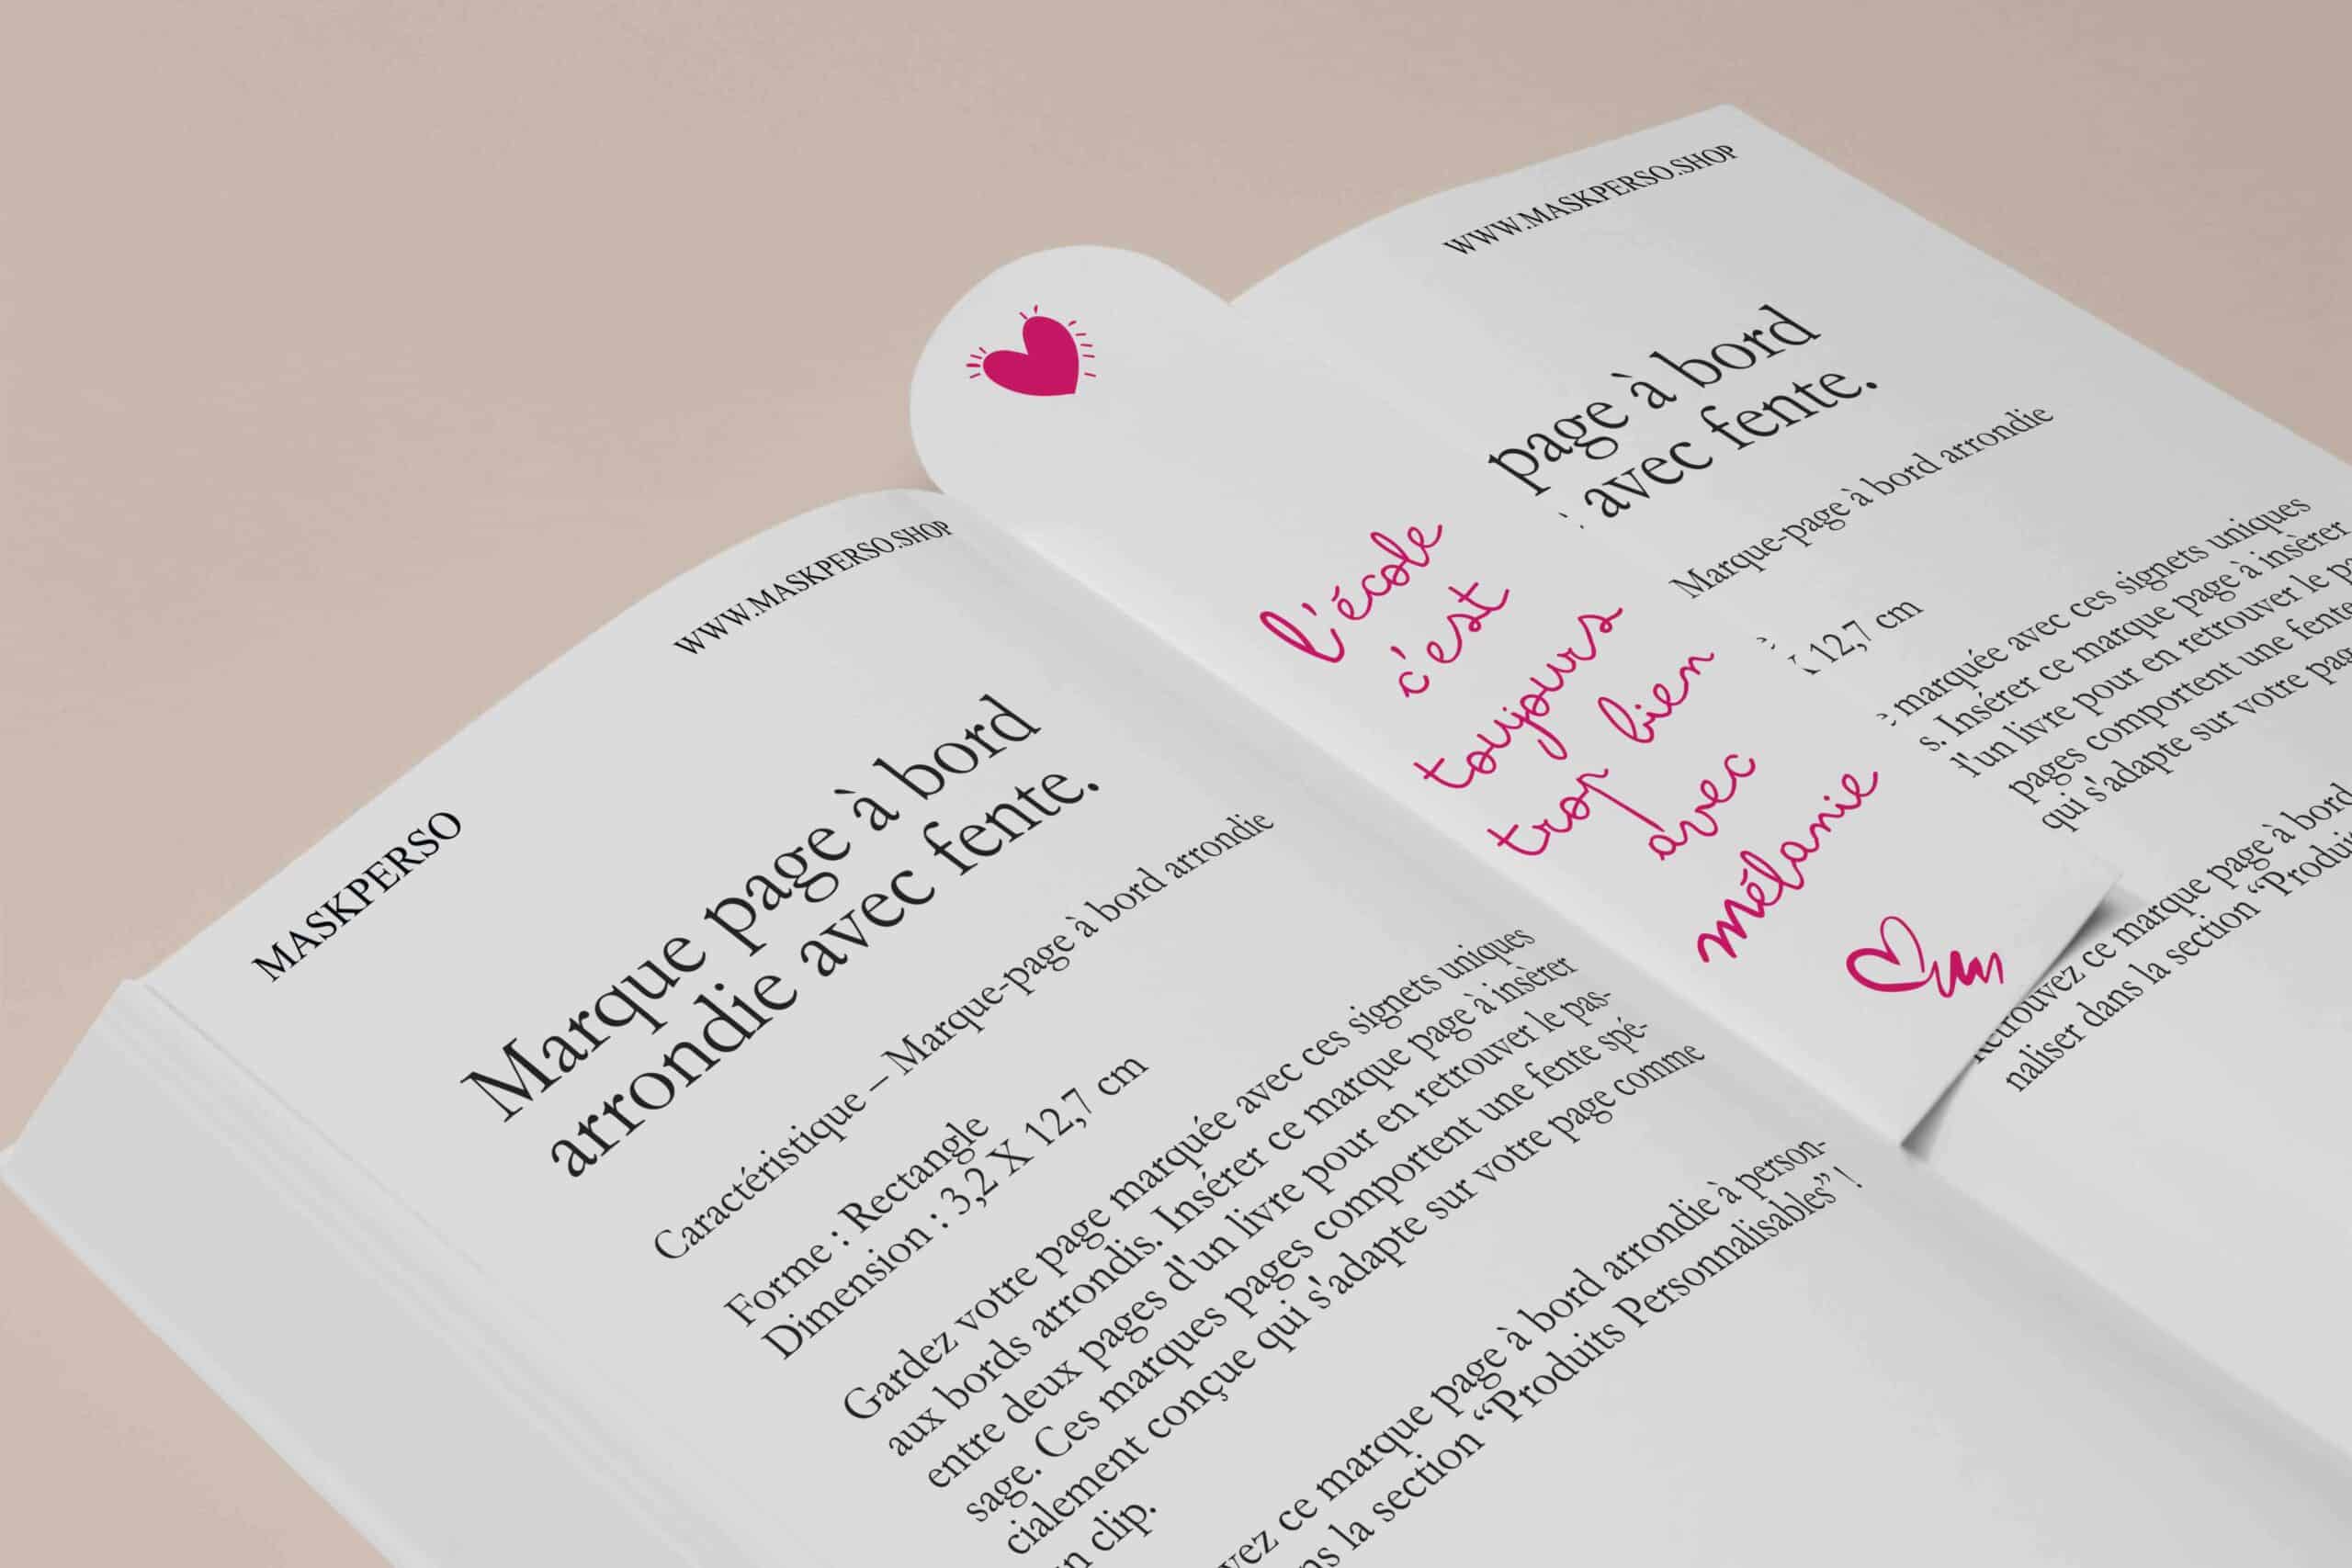 MASKPERSO
WWW.MASKPERSO.SHOP
Marque page à bord
arrondie avec fente.
Caractéristique – Marque-page à bord arrondie
Forme : Rectangle
Dimension : 3,2 X 12,7 cm
Gardez votre page marquée avec ces signets uniques
aux bords arrondis. Insérer ce marque page à insèrer
entre deux pages d'un livre pour en retrouver le pas-
sage. Ces marques pages comportent une fente spé-
cialement conçue qui s'adapte sur votre page comme
clip.
ce marque page à bord arrondie à person-
la section “Produits Personnalisables” !
l'école
c'est
toujours
trop bien
avec
mélanie
WWW.MASKPERSO.SHOP
page à bord
avec fente.
Marque-page à bord arrondie
12,7 cm
marquée avec ces signets uniques
s. Insérer ce marque page à insèrer
l'un livre pour en retrouver le
pages comportent une fente
qui s'adapte sur votre
Retrouvez ce marque page à bord
naliser dans la section